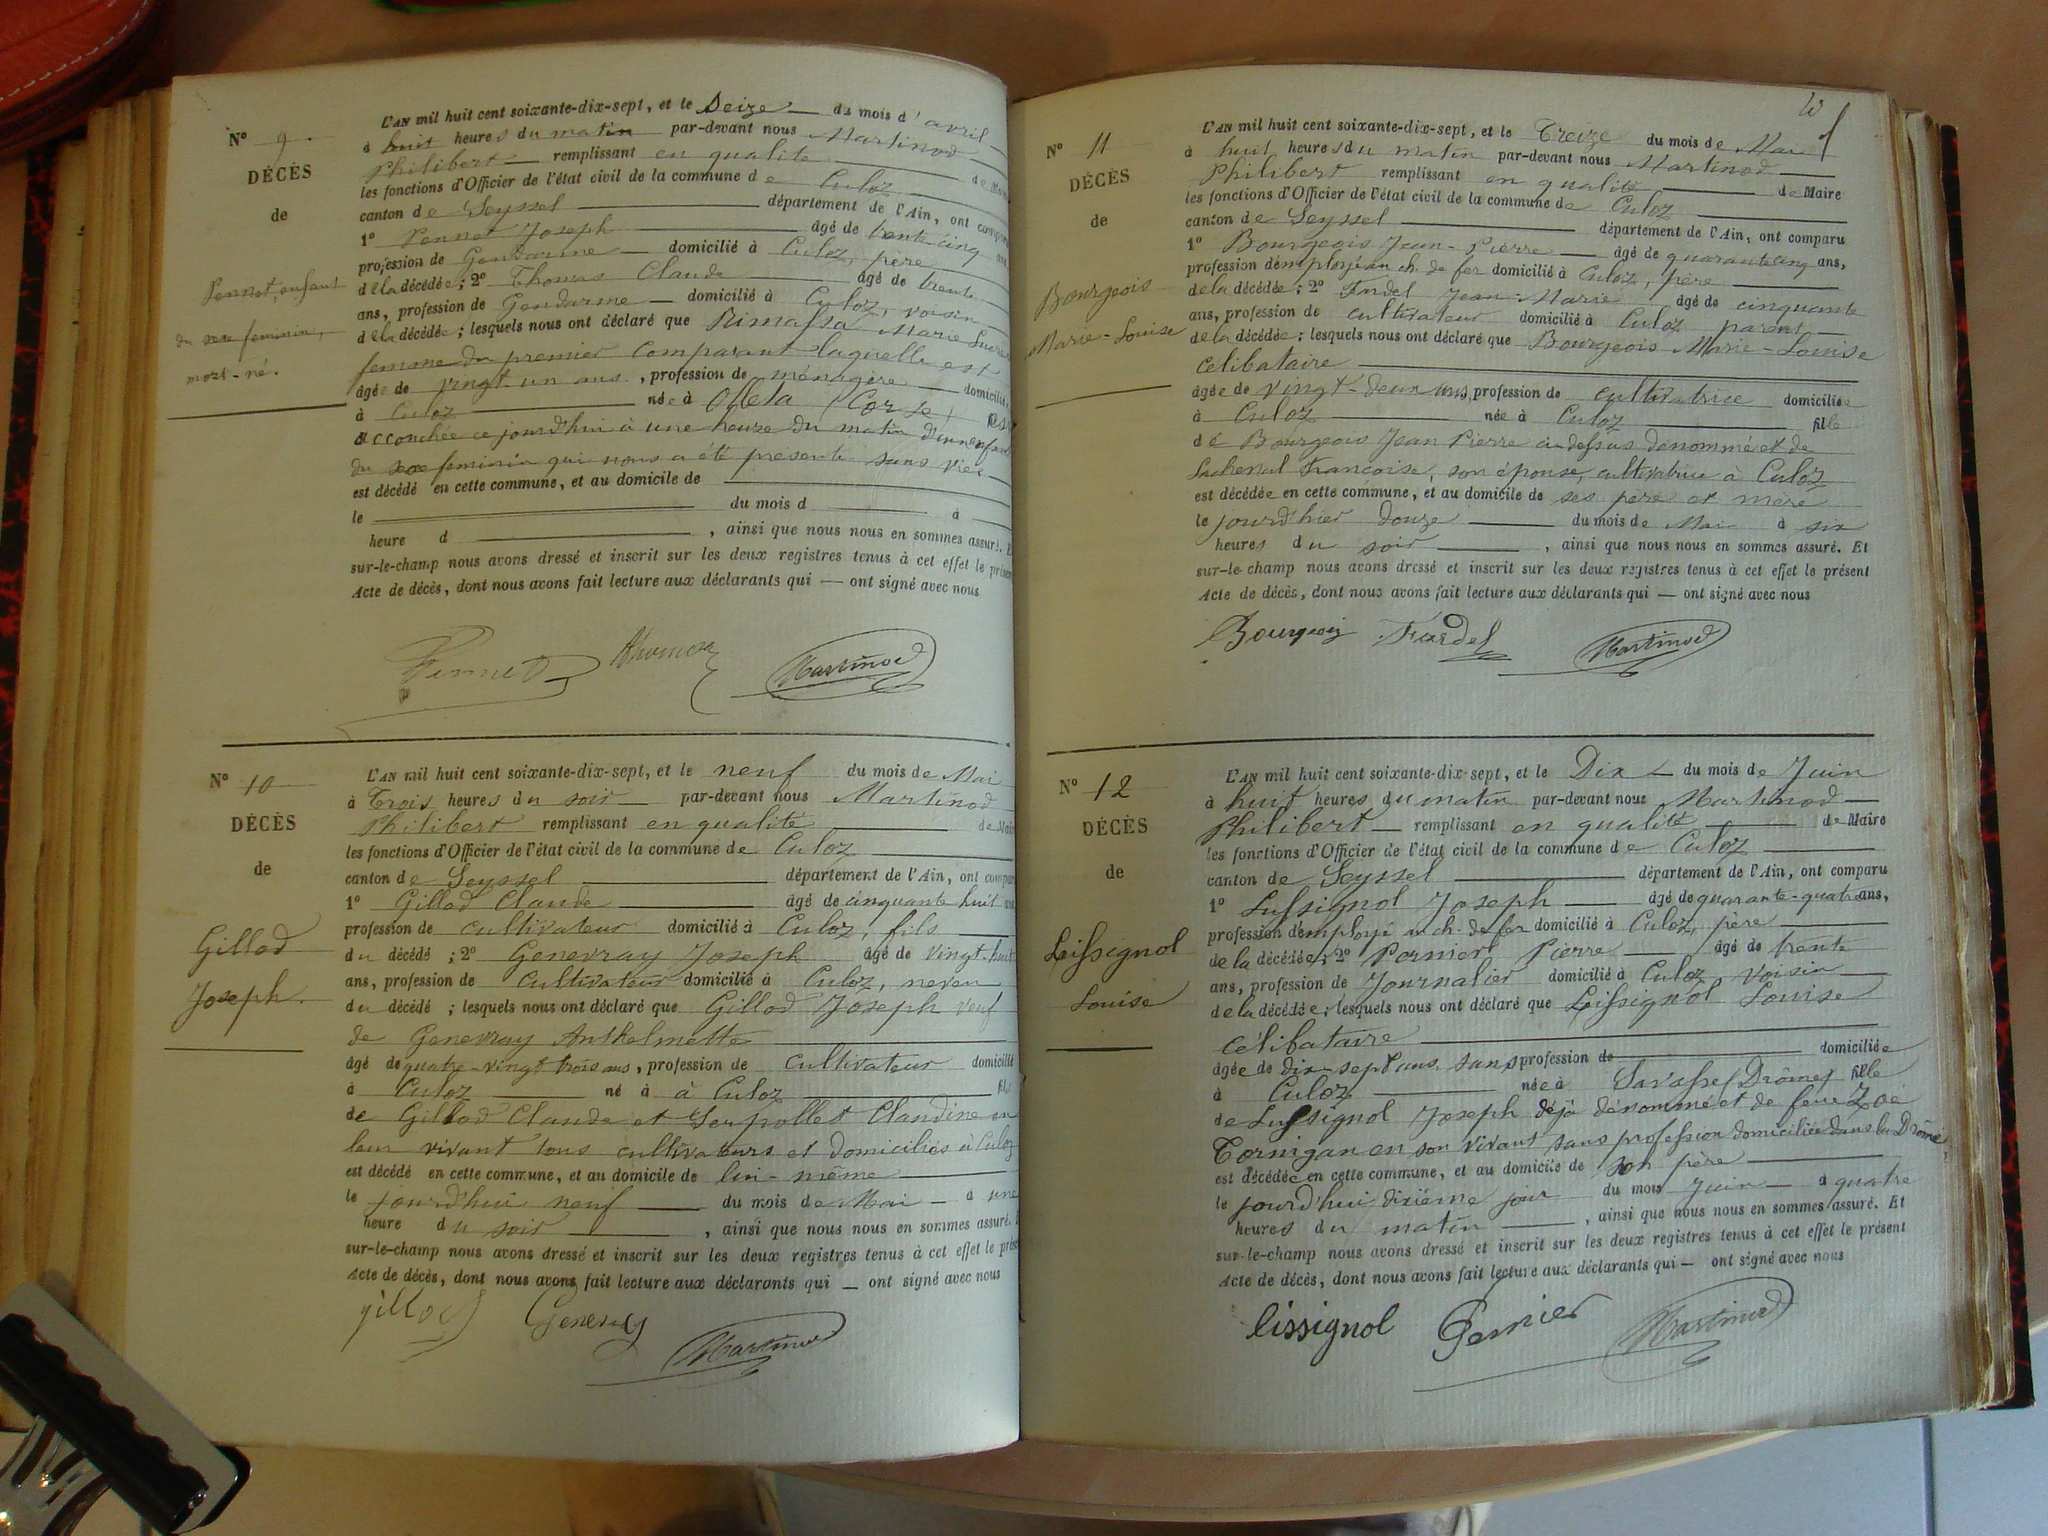 N° 9
DÉCÈS
de
Pennet, enfant
du sexe feminin,
mort-né.
L'AN mil huit cent soixante-dix-sept, et le Seize du mois d'avril
à huit heures du matin par-devant nous Martinod
Philibert remplissant en qualité de Maire
les fonctions d'Officier de l'état civil de la commune de Culoz
canton de Seyssel département de l'Ain, ont comparu
1° Pennet Joseph âgé de trente cinq ans,
profession de Gendarme domicilié à Culoz, père
de la décédée ; 2° Thomas Claude âgé de trente
ans, profession de Gendarme domicilié à Culoz, voisin
de la décédée ; lesquels nous ont déclaré que Rimassa Marie
femme du premier comparant laquelle est
âgée de vingt-un ans, profession de ménagère domiciliée
à Culoz née à (Corse) est
accouchée ce jourd'hui à une heure du matin d'un enfant
du sexe feminin qui nous a été presenté sans vie
est décédé en cette commune, et au domicile de
le du mois d à
heure d , ainsi que nous nous en sommes assuré. Et
sur-le-champ nous avons dressé et inscrit sur les deux registres tenus à cet effet le présent
Acte de décès, dont nous avons fait lecture aux déclarants qui — ont signé avec nous
Pennet Thomas Martinod
N° 10
DÉCÈS
de
Gillod
Joseph.
L'AN mil huit cent soixante-dix-sept, et le neuf du mois de Mai
à Trois heures du soir par-devant nous Martinod
Philibert remplissant en qualité de Maire
les fonctions d'Officier de l'état civil de la commune de Culoz
canton de Seyssel département de l'Ain, ont comparu
1° Gillod Claude âgé de cinquante huit ans
profession de cultivateur domicilié à Culoz, fils
du décédé ; 2° Genevray Joseph âgé de vingt-huit
ans, profession de Cultivateur domicilié à Culoz, neveu
du décédé ; lesquels nous ont déclaré que Gillod Joseph veuf
de Genevray Anthelmette
âgé de quatre-vingt trois ans, profession de cultivateur domicilié
à Culoz né à à Culoz fils
de Gillod Claude et Serpollet Claudine en
leur vivant tous cultivateurs et domiciliés à Culoz
est décédé en cette commune, et au domicile de lui-même
le jourd'hui neuf du mois de Mai à une
heure du soir , ainsi que nous nous en sommes assuré. Et
sur-le-champ nous avons dressé et inscrit sur les deux registres tenus à cet effet le présent
Acte de décès, dont nous avons fait lecture aux déclarants qui — ont signé avec nous
gillod Genevray Martinod
N° 11
DÉCÈS
de
Bourgeois
Marie-Louise
L'AN mil huit cent soixante-dix-sept, et le Treize du mois de Mai
à huit heures du matin par-devant nous Martinod
Philibert remplissant en qualité de Maire
les fonctions d'Officier de l'état civil de la commune de Culoz
canton de Seyssel département de l'Ain, ont comparu
1° Bourgeois Jean-Pierre âgé de quarante cinq ans,
profession d'employé au ch. de fer domicilié à Culoz, père
de la décédée ; 2° Fardel Jean-Marie âgé de cinquante
ans, profession de cultivateur domicilié à Culoz parent
de la décédée ; lesquels nous ont déclaré que Bourgeois Marie-Louise
célibataire
âgée de vingt-deux ans, profession de cultivatrice domiciliée
à Culoz née à Culoz fille
de Bourgeois Jean Pierre ci-dessus dénommé et de
Lachenal Françoise, son épouse, cultivatrice à Culoz
est décédée en cette commune, et au domicile de ses père et mère
le jourd'hier douze du mois de Mai à six
heures du soir , ainsi que nous nous en sommes assuré. Et
sur-le-champ nous avons dressé et inscrit sur les deux registres tenus à cet effet le présent
Acte de décès, dont nous avons fait lecture aux déclarants qui — ont signé avec nous
Bourgeois Fardel Martinod
N° 12
DÉCÈS
de
Lissignol
Louise
L'AN mil huit cent soixante-dix-sept, et le Dix du mois de Juin
à huit heures du matin par-devant nous Martinod
Philibert remplissant en qualité de Maire
les fonctions d'Officier de l'état civil de la commune de Culoz
canton de Seyssel département de l'Ain, ont comparu
1° Lissignol Joseph âgé de quarante-quatre ans,
profession d'employé au ch. de fer domicilié à Culoz, père
de la décédée ; 2° Pernier Pierre âgé de trente
ans, profession de Journalier domicilié à Culoz, voisin
de la décédée ; lesquels nous ont déclaré que Lissignol Louise
célibataire
âgée de dix sept ans, sans profession de domiciliée
à Culoz née à Savasse (Drôme) fille
de Lissignol Joseph déjà dénommé et de feue Zoé
Tornigan en son vivant sans profession domiciliée dans la Drôme,
est décédée en cette commune, et au domicile de son père
le jourd'hui dixième jour du mois Juin à quatre
heures du matin , ainsi que nous nous en sommes assuré. Et
sur-le-champ nous avons dressé et inscrit sur les deux registres tenus à cet effet le présent
Acte de décès, dont nous avons fait lecture aux déclarants qui — ont signé avec nous
lissignol Pernier Martinod